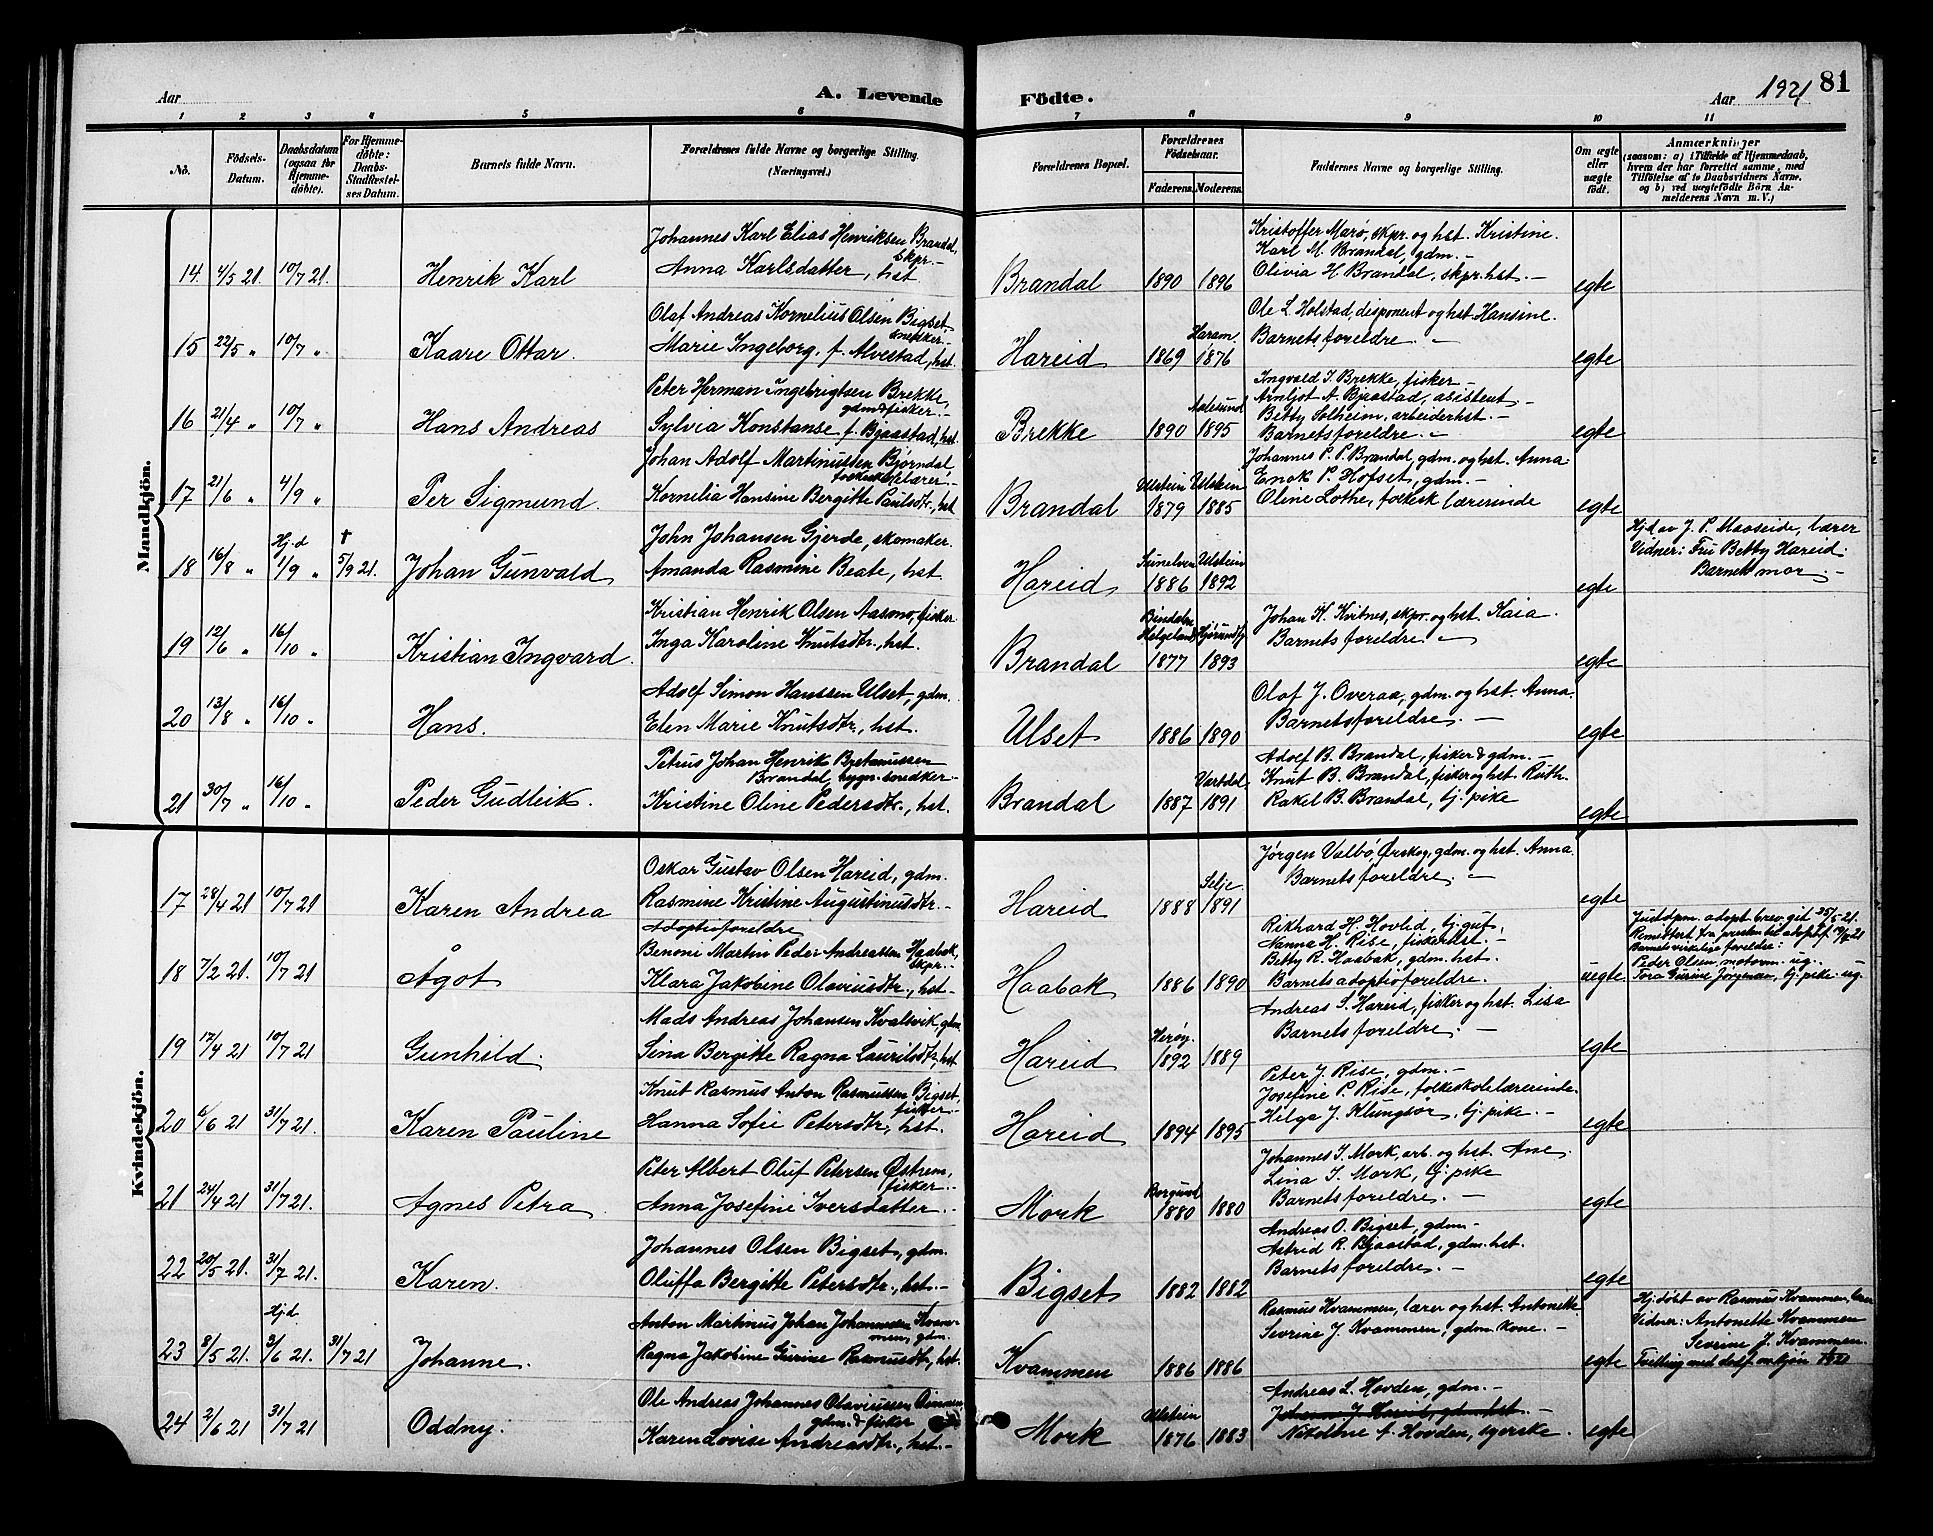 Aar
A. Levende
Födte.
Aar 1921
81
1 2 3 4 5 6 7 8 9 10 11
No.
Födsels-Datum.
Daabsdatum (ogsaa for Hjemmedöbte).
For Hjemmedöbte: Daabs-Stadfæstelses Datum.
Barnets fulde Navn.
Forældrenes fulde Navne og borgerlige Stilling. (Næringsvei.)
Forældrenes Bopæl.
Forældrenes Födselsaar.
Faderens. Moderens.
Faddernes Navne og borgerlige Stilling.
Om ægte eller uægte födt.
Anmærkninger
(saasom: a) i Tilfælde af Hjemmedaab, hvem der har forrettet samme, med Tilföielse af to Daabsvidners Navne. og b) ved uægtefödte Börn Anmelderens Navn m. V.)
Mandkjön.
Johannes Karl Elias Henriksen Brandal, skpr.
Kristoffer Marø, skpr. og hst. Kristine.
Karl M. Brandal, gdm.
14. 4/5 21. 10/7 21. Henrik Karl Anna Karlsdatter, hst Brandal 1890 1896 Olivia H. Brandal, skpr. hst. egte
Olaf Andreas Kornelius Olsen Bigset, snekker
Ole L. Holstad, disponent og hst. Hansine.
15 22/5 " 10/7 " Kaare Ottar. Marie Ingeborg, f. Alvestad, hst. Hareid 1869 Haram 1876 Barnets foreldre egte
Peter Herman Ingebrigtsen Brekke, gdm & fisker.
Ingvald I. Brekke, fisker
Arnljot A. Bjaastad, assistent
Betty Solheim, arbeiderhst.
16 21/4 " 10/7 " Hans Andreas Sylvia Konstanse f. Bjaastad, hst. Brekke 1890 Aalesund 1895 Barnets foreldre. egte
Johan Adolf Martinussen Bjørndal, folkeskolelærer
Johannes P. P. Brandal, gdm. og hst. Anna.
Enok P. Hofset, gdm.
17 21/6 " 4/9 " Per Sigmund. Kornelia Hansine Bergitte Paulsdtr., hst Brandal Ulstein 1879 Ulstein 1885 Oline Lothe, folkesk lærerinde egte
John Johansen Gjerde, skomaker.
Hj.d av J. P. Maaseide, lærer
Vidner: Fru Betty Hareid.
Barnets mor.
18 16/8 " Hj.d 1/9 " † 5/9 21. Johan Gunvald Amanda Rasmine Beate, hst. Hareid Sunelven 1886 Ulstein 1892 egte
Kristian Henrik Olsen Aasmo, fisker
Johan K. Kvitnes, skpr. og hst. Kaia.
19 12/6 " 16/10 " Kristian Ingvard. Inga Karoline Knutsdtr., hst. Brandal Bindalen Helgeland 1877 Hjørundfj 1893 Barnets foreldre egte
Adolf Simon Hanssen Ulset, gdm.
Olaf J. Overaa, gdm. og hst. Anna.
20 13/8 " 16/10 " Hans. Elen Marie Knutsdtr., hst. Ulset 1886 1890 Barnets foreldre. egte
Petrus Johan Henrik
Brandal, bygn. snedker
Adolf B. Brandal, fisker & gdm.
Knut B. Brandal, fisker og hst. Ruth.
21 30/7 " 16/10 " Peder Gudleik. Kristine Oline Pedersdtr., hst. Brandal 1887 Vartdal 1891 Rakel B. Brandal, tj. pike egte
Kvindekjön.
Oskar Gustav Olsen Hareid, gdm.
Jørgen Valbø, Ørskog, gdm. og hst. Anna.
Barnets foreldre.
17 28/4 21 10/7 21 Karen Andrea Rasmine Kristine Augustinusdtr. Hareid 1888 Selje 1891 egte
Adoptivforeldre
Benoni Martin Peder Andreassen Haabak, skpr.
Rikhard H. Hovlid, tj. gut,
Nanna H. Rise, fiskerhst.
Betty R. Haabak, gdm. hst.
Justdpm. adopt. brev. git 25/5-21.
Barnets virkelige foreldre:
Peder Olsen, motorm. ug.
18 7/2 21. 10/7 21 Ågot Klara Jakobine Olaviusdtr., hst. Haabak 1886 1890 Barnets adoptivforeldre. uegte Tora Gurine Jørgensen, tj. pike. ug.
Mads Andreas Johansen Kvalsvik, gdm.
Andreas S. Hareid, fisker og hst. Lisa
19 17/4 21 10/7 21 Gunhild. Sina Bergitte Ragna Lauritsdtr., hst Hareid Herøy. 1892 1889 Barnets foreldre. egte
Knut Rasmus Anton Rasmussen Bigset, fisker
Peter J. Rise, gdm.
Josefine P. Rise, folkeskolelærerinde.
20 6/6 21 31/7 21. Karen Pauline Hanna Sofie Petersdtr., hst. Hareid 1894 1895 Helga J. Klungsør, tj. pike. egte
Peter Albert Oluf Petersen Østrem, fisker
Johannes I. Mork, arb. og hst. Ane.
Lina I. Mork, tj. pike
21 24/4 21 31/7 21. Agnes Petra Anna Josefine Iversdatter. Mork Borgund 1880 1880 Barnets foreldre. egte
Johannes Olsen Bigset, gdm.
Andreas O. Bigset, gdm.
Astrid R. Bjaastad, gdm. hst.
22 20/5 21. 31/7 21. Karen. Oluffa Bergitte Petersdtr., hst. Bigset 1882 1882 Barnets foreldre. egte
Anton Martinus Johan Johannessen Kvammen, gdm.
Rasmus Kvammen, lærer og hst. Antonette
Hj. døbt av Rasmus Kvammen, lærer
Vidner: Antonette Kvammen
Sevrine J. Kvammen.
23 8/5 21. Hj.d. 3/6 21. 31/7 21 Johanne. Ragna Jakobine Gurine Rasmusdtr., hst. Kvammen 1886 1886 Sevrine J. Kvammen, gdm. kone. egte Tvilling med dødf. mkjøn
Ole Andreas Johannes Olaviussen
gdm. & fisker
Andreas L. Hovden, gdm.
24 2/6 21 31/7 21 Oddny. Karen Lovise Andreasdtr., hst. Mork Ulstein 1876 1883 Nikoline f. Hovden, syerske. egte